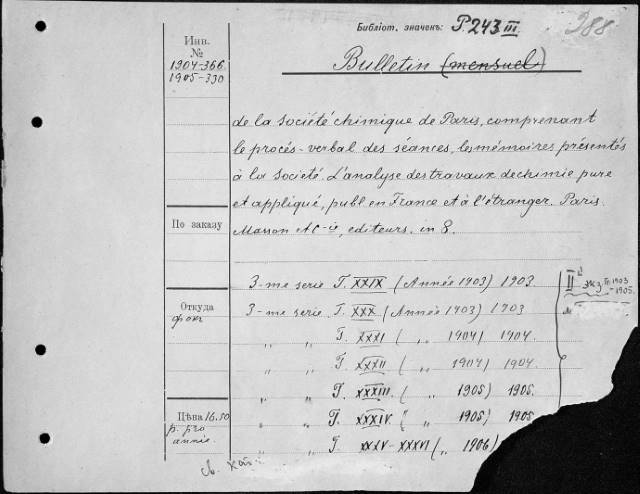 Библіот. значекъ: P.243 III.
388
Bulletin (mensuel)
Инв.
№
1904-366
1905-330
de la Société chimique de Paris, comprenant
le procés-verbal des séances, les mémoires présentés
à la Société. L'analyse des travaux de chimie pure
et appliqué, publ en France et à l'étranger. Paris.
Masson et C-ie, editeurs. in 8.
По заказу
3-me serie T. XXIX (Année 1903) 1903.
Откуда
3-me serie T. XXX (Année 1903) 1903
„ „ T. XXXI ( „ 1904) 1904.
„ „ T. XXXII ( „ 1904) 1904.
„ „ T. XXXIII ( „ 1905) 1905.
„ „ T. XXXIV. ( „ 1905) 1905.
„ „ T. XXXV-XXXVI ( „ 1906)
II экз. 1903
-1905.
Цѣна 16.50
р. pro
annie.